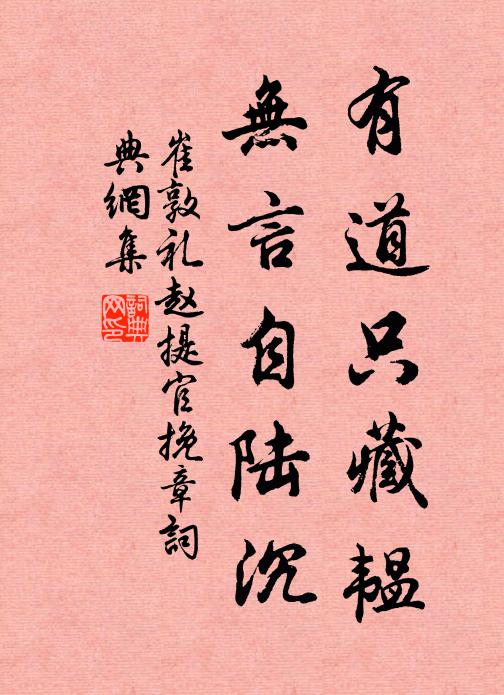 有道只藏韫
無言自陆沉
崔敦礼赵提官挽章詞
典網集
詞典网印